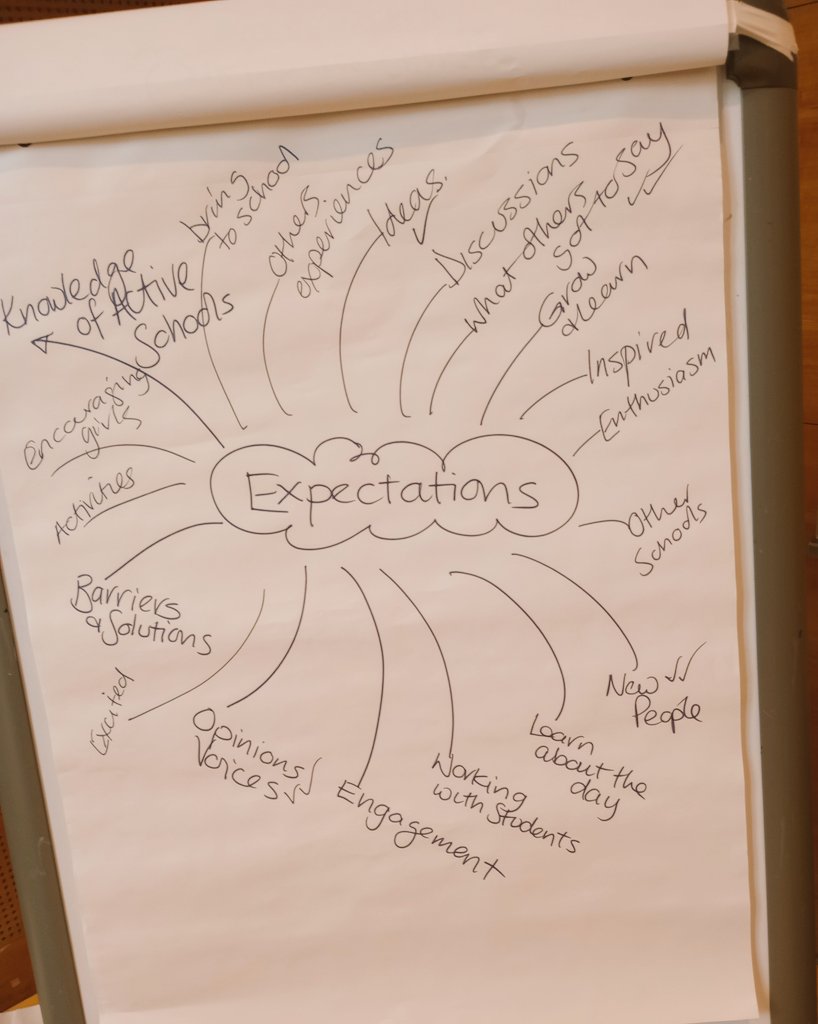 Expectations
Knowledge
of Active
Schools
bring
to school
Others
experiences
Ideas.
Discussions
what others
got to say
Grow
& learn
Inspired
Enthusiasm
Other
Schools
New
People
Learn
about the
day
Working
with Students
Engagement
Opinions
Voices
Excited
Barriers
& Solutions
Activities
Encouraging
girls